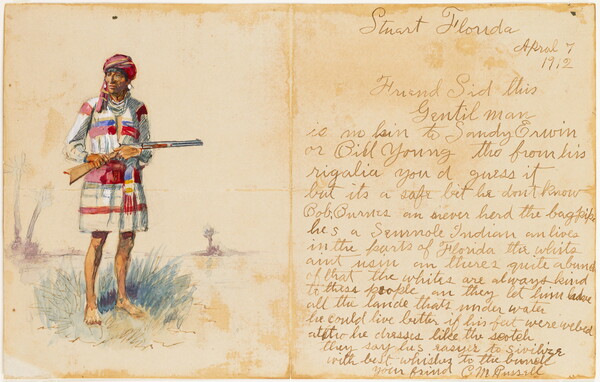 Stuart Florida
April 7
1912
Friend Sid this
Gentil man
is no kin to Sandy Erwin
or Bill Young tho from his
rigalia you d guess it
but its a safe bit he dont know
Bob Burnes an never herd the bagpipe
hes a Semnole Indian an lives
in the parts of Florida ther whits
aint usin an theres quite a bunch
of that the whites are always kind
to these people an they let him have
all the lande thats under water
he could live bitter if his feet were webed
altho he dresses like the scotch
they say hes easier to sivilize
with best whishes to the bunch
your frind C M Russell